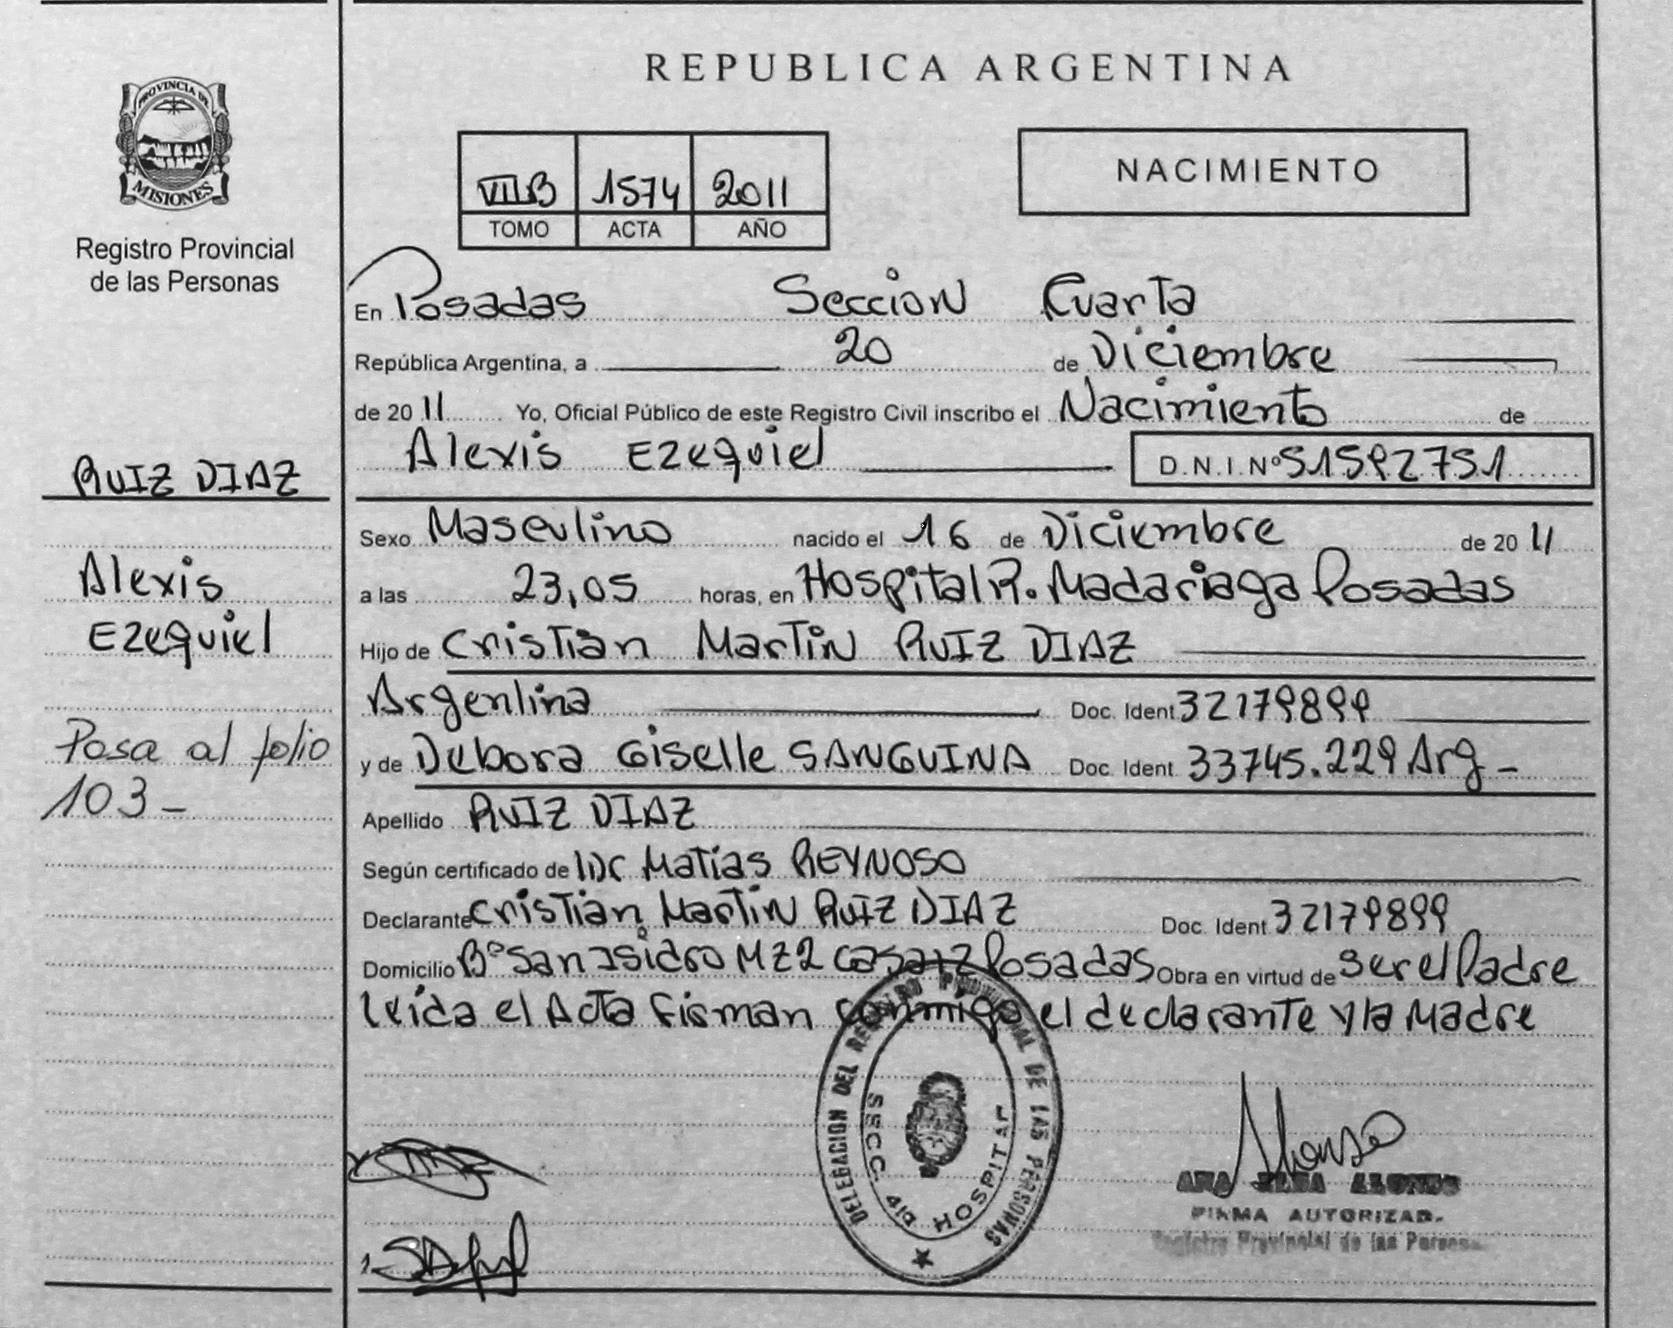 REPUBLICA ARGENTINA
PROVINCIA DE
MISIONES
Registro Provincial
de las Personas
VII B 1574 2011
TOMO ACTA AÑO
NACIMIENTO
En Posadas Seccion Cuarta
República Argentina, a 20 de Diciembre
de 2011 Yo, Oficial Público de este Registro Civil inscribo el Nacimiento de
Alexis Ezequiel D.N.I. Nº 51592751
RUIZ DIAZ
Alexis
Ezequiel
Pasa al folio
103-
Sexo Masculino nacido el 16 de Diciembre de 2011
a las 23,05 horas, en Hospital R. Madariaga Posadas
Hijo de Cristian Martin RUIZ DIAZ
Argentina Doc. Ident 32179899
y de Debora Giselle SANGUINA Doc. Ident 33745.229 Arg-
Apellido RUIZ DIAZ
Según certificado de Matias REYNOSO
Declarante Cristian Martin RUIZ DIAZ Doc. Ident 32179899
Domicilio Bº San Isidro MZ2 casa Posadas Obra en virtud de ser el Padre
leida el Acta firman conmigo el declarante y la Madre
DELEGACION DEL REGISTRO PROVINCIAL DE LAS PERSONAS
SECC. 4ta HOSPITAL
ALONSO
FIRMA AUTORIZAD.
Registro Provincial de las Persona